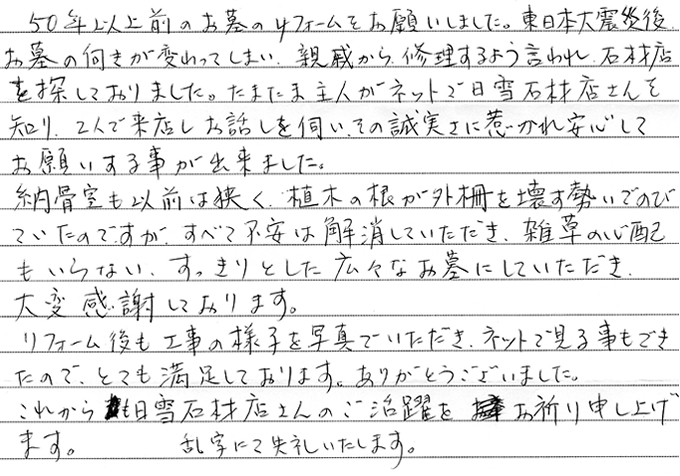 50年以上前のお墓のリフォームをお願いしました。東日本大震災後
お墓の向きが変わってしまい、親戚から修理するよう言われ、石材店
を探しておりました。たまたま主人がネットで日雪石材店さんを
知り、2人で来店しお話しを伺い、その誠実さに惹かれ安心して
お願いする事が出来ました。
納骨室も以前は狭く、植木の根が外柵を壊す勢いでのび
ていたのですが、すべて不安は解消していただき、雑草の心配
もいらない、すっきりとした広々なお墓にしていただき、
大変感謝しております。
リフォーム後も工事の様子を写真でいただき、ネットで見る事もでき
たので、とても満足しております。ありがとうございました。
これからも日雪石材店さんのご活躍をお祈り申し上げ
ます。 乱字にて失礼いたします。